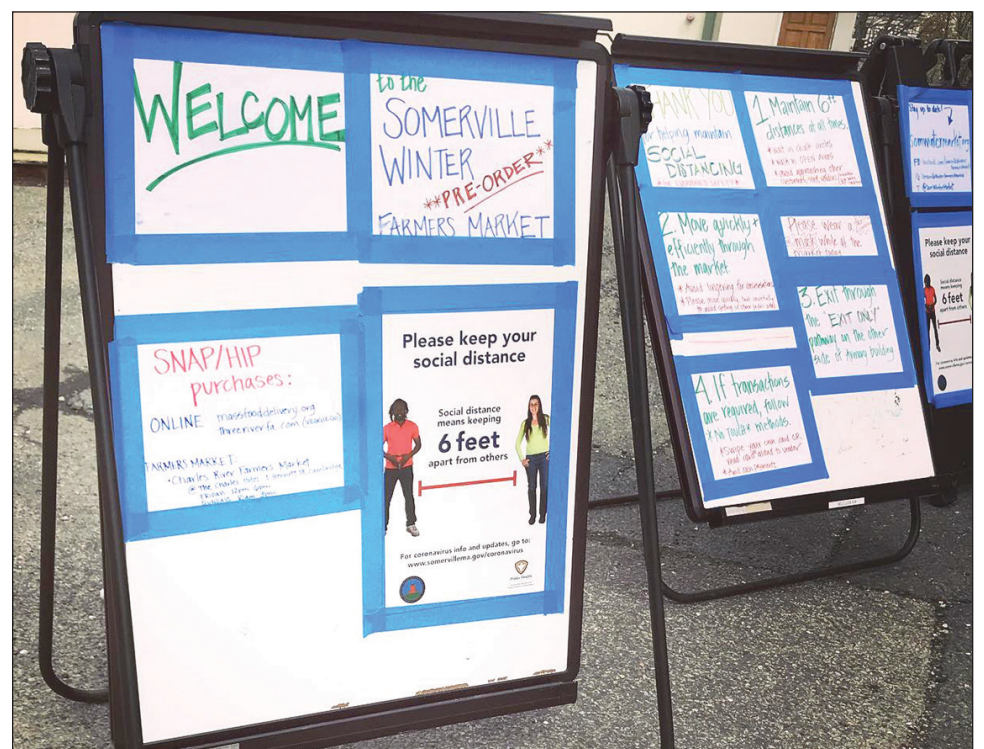 WELCOME
to the
SOMERVILLE
WINTER
**PRE-ORDER**
FARMERS MARKET
SNAP/HIP
purchases:
ONLINE massfooddelivery.org
FARMERS MARKET:
*Charles River Farmers Market
@ the Charles Hotel
Please keep your
social distance
Social distance
means keeping
6 feet
apart from others
For coronavirus info and updates, go to:
www.somervillema.gov/coronavirus
THANK YOU
for helping maintain
SOCIAL
DISTANCING
1. Maintain 6ft
distances at all times.
*wait in chalk circles
*walk in OPEN AREAS
*avoid approaching other
2. Move quickly +
efficiently through
the market
*Avoid lingering for conversation
*Please move quickly, but
Please wear a
mask while at the
market today
3. Exit through
the "EXIT ONLY"
pathway on the other
side of building
4. If transactions
are required, follow
*No Touch* methods.
*Swipe your own card or
read card aloud to vendor
*Avoid cash payments
Stay up to date!
Please keep your
social distance
Social distance
means keeping
6 feet
apart from others